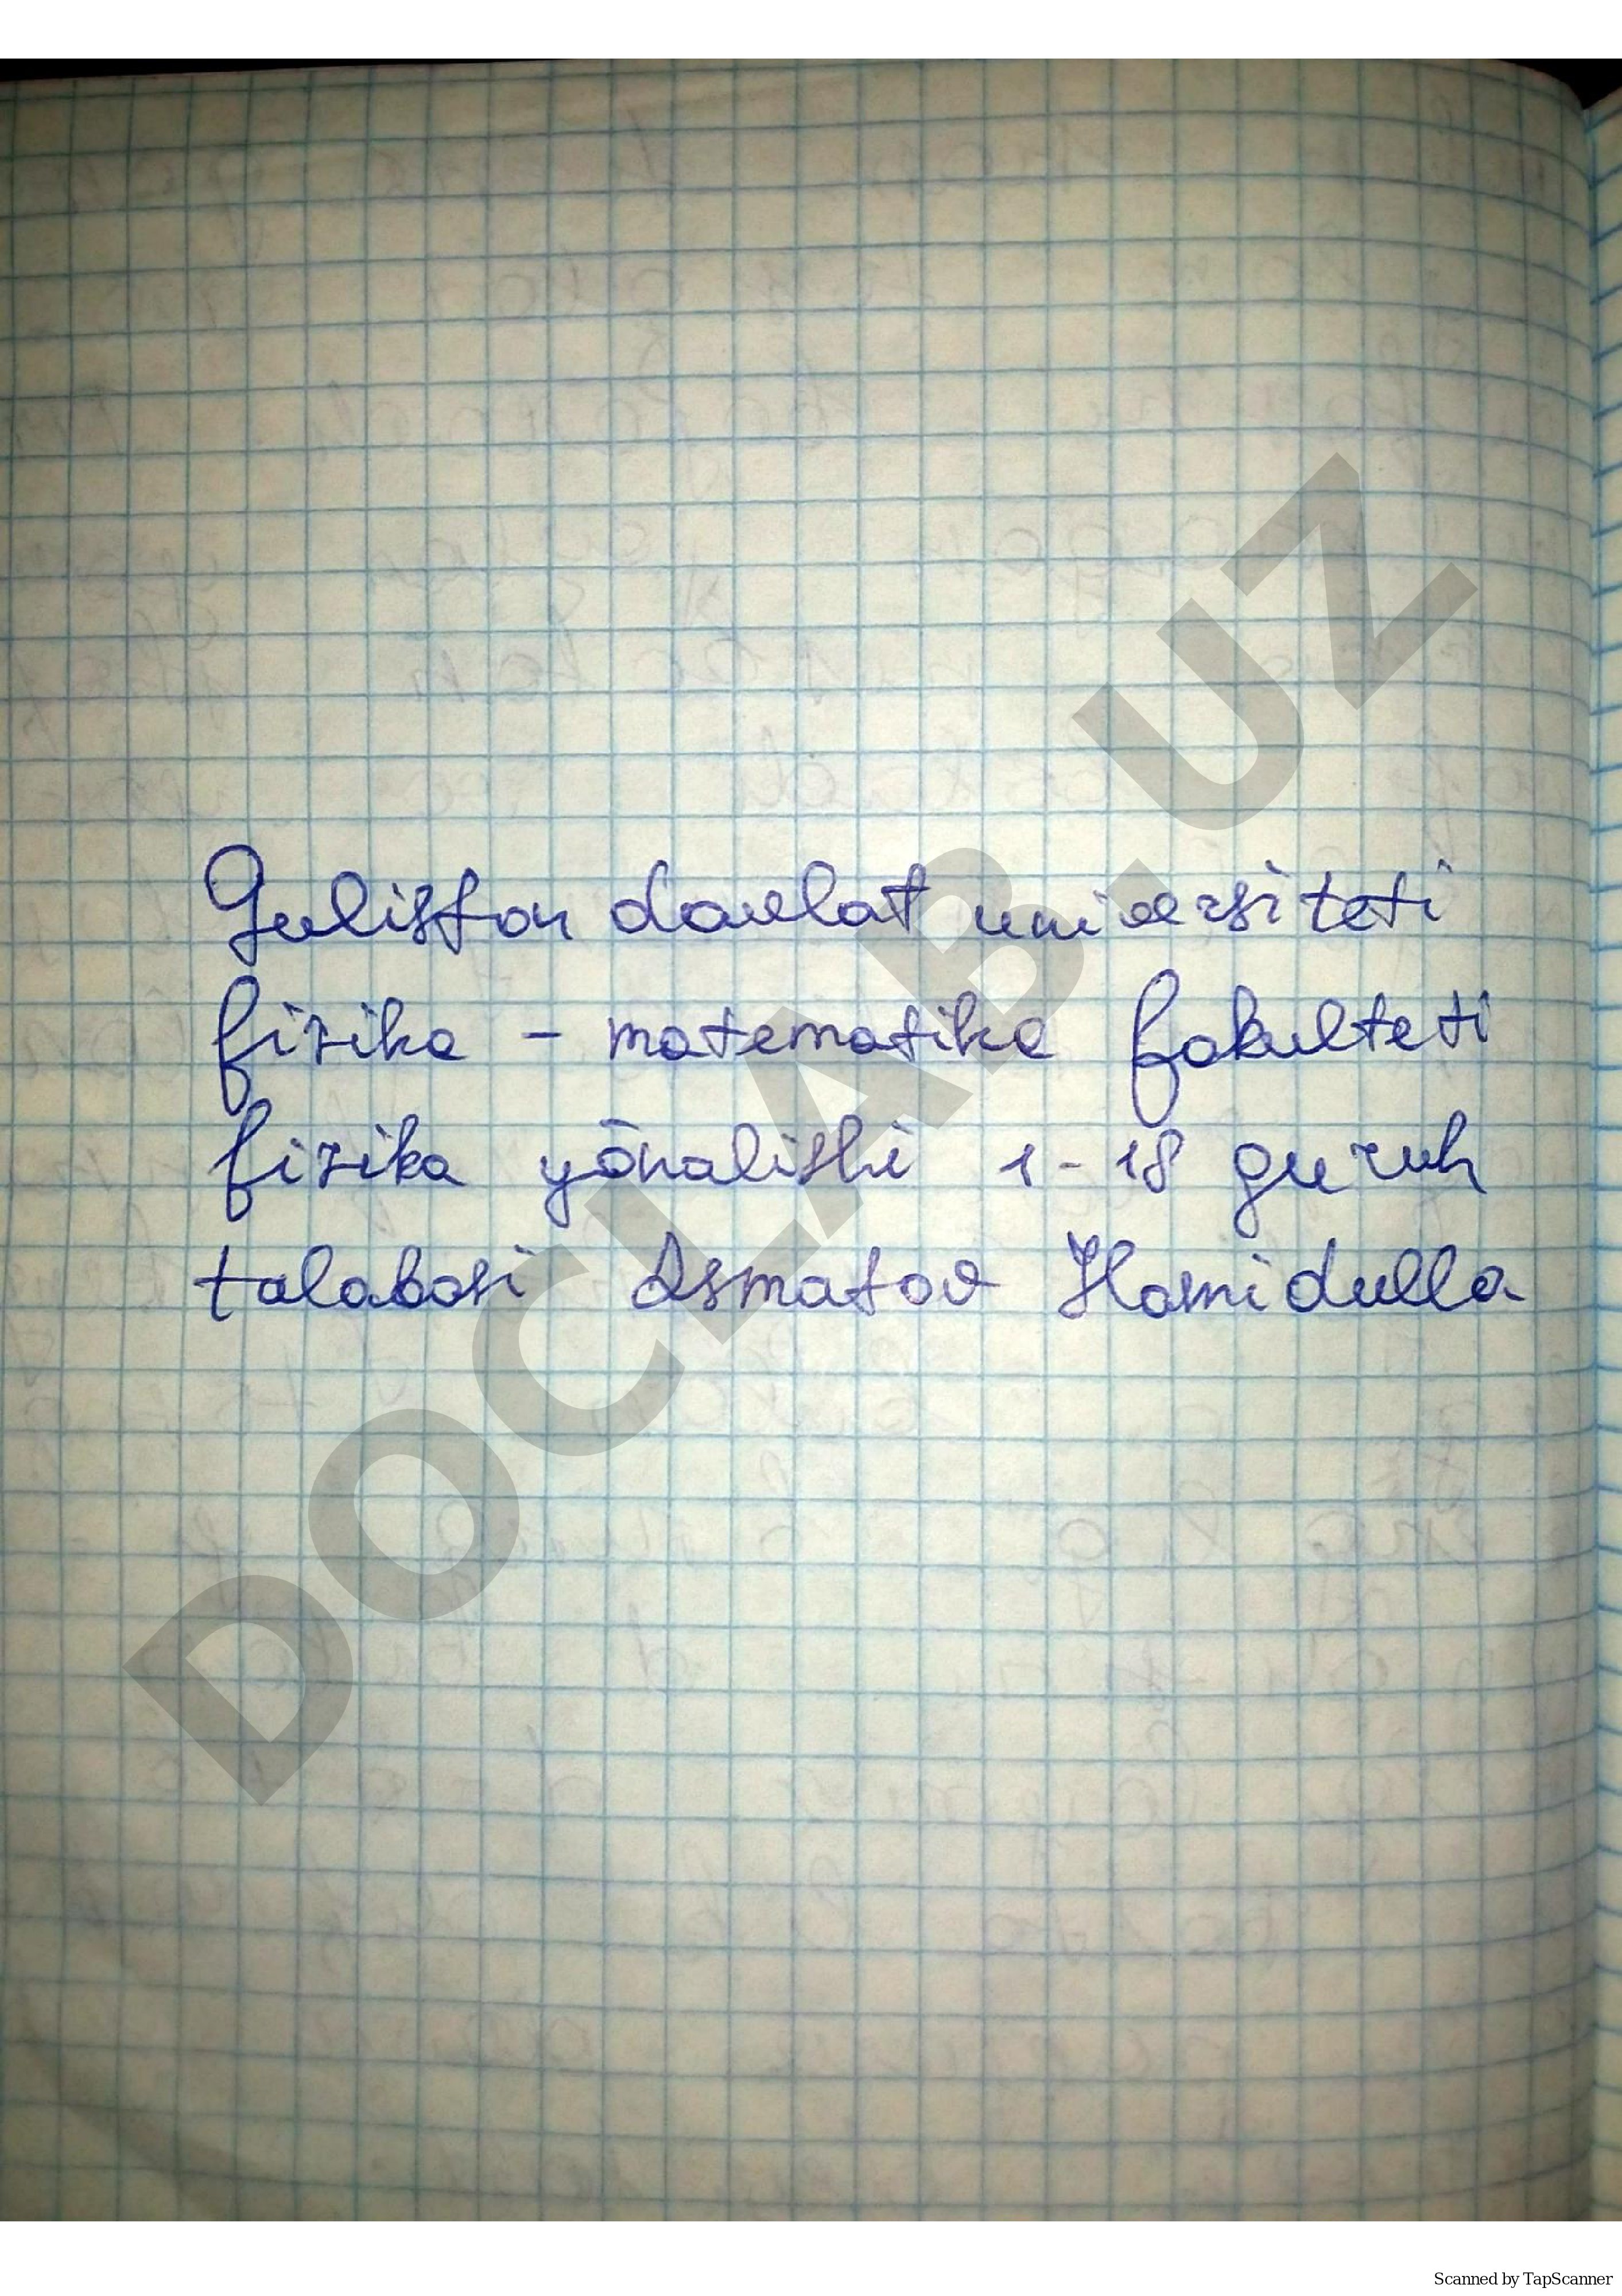 Guliston davlat universiteti
fizika - matematika fakulteti
fizika yōnalishi 1-18 guruh
talabasi Asmatov Hamidulla
DOCLAB.UZ
Scanned by TapScanner